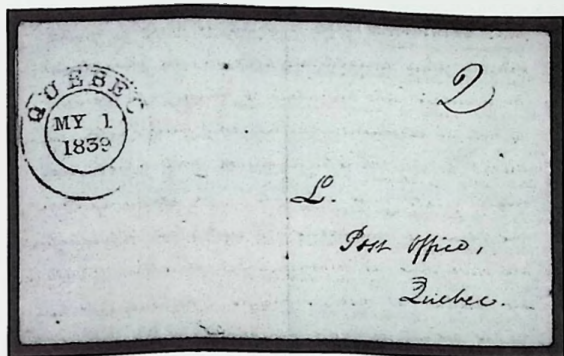 QUEBEC
MY 1
1839
2
L.
Post Office,
Quebec.